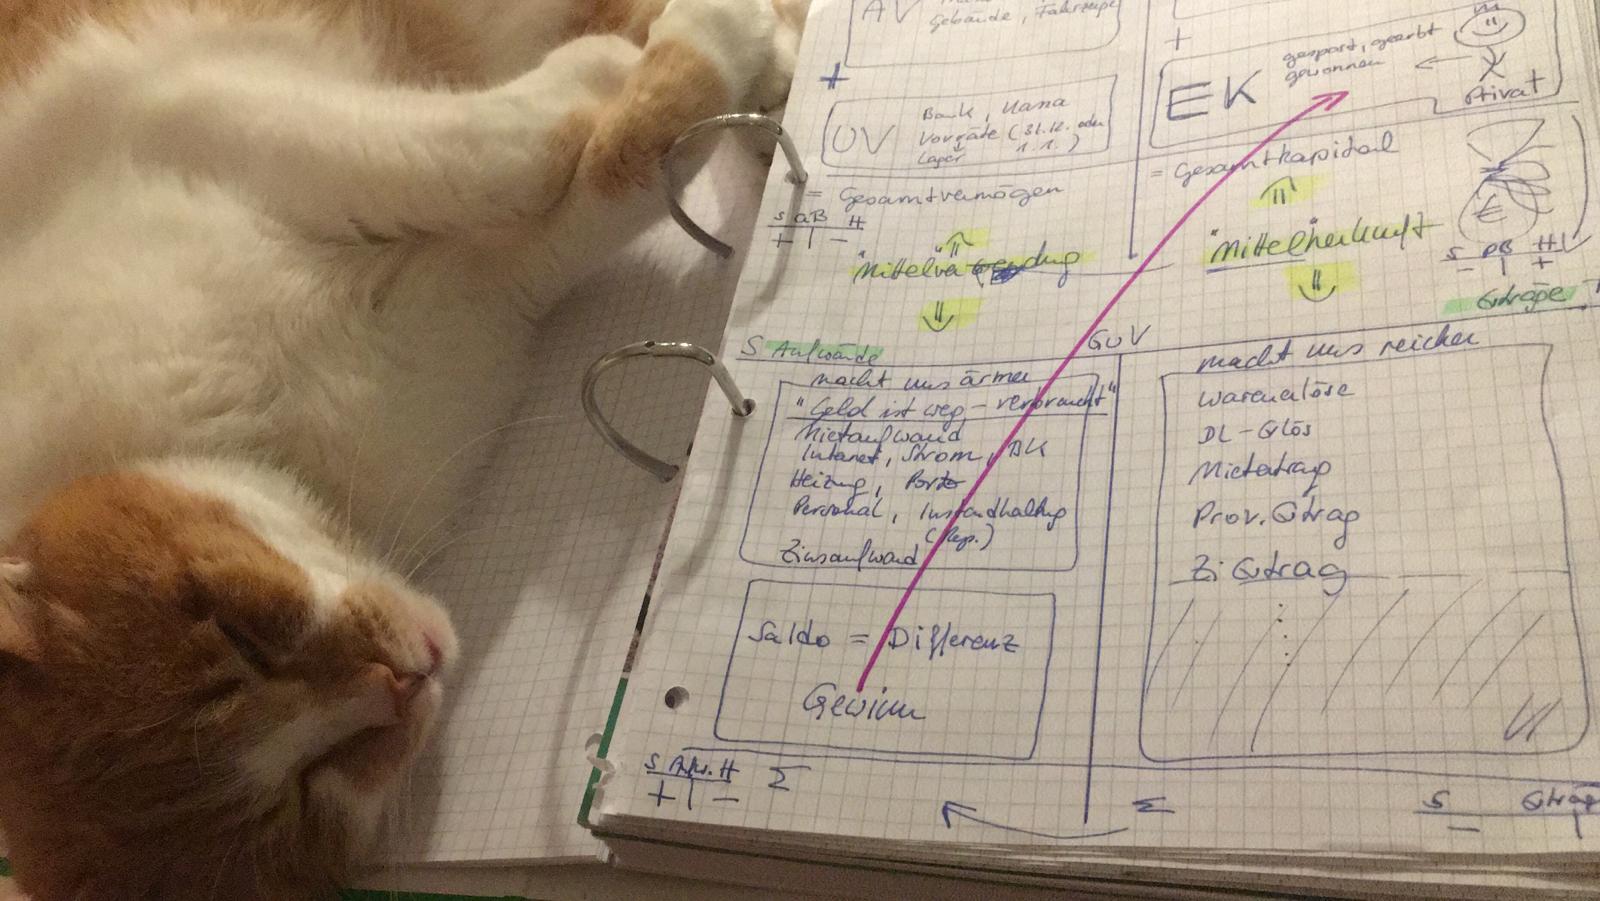 AV
Gebäude, Fahrzeuge
+
UV
Bank, Kassa
Vorräte (31.12. oder
Lager 1.1.)
= Gesamtvermögen
S aB H
+ | -
"Mittelverwendung
+
EK
gespart, geerbt
gewonnen
Privat
= Gesamtkapital
"Mittelherkunft"
€
S PB H
- | +
Erträge
GuV
S Aufwände
macht uns ärmer
"Geld ist weg - verbraucht"
Mietaufwand
Internet, Strom, BK
Heizung, Porto
Personal, Instandhaltung
(Rep.)
Zinsaufwand
Saldo = Differenz
Gewinn
S Aufw. H
+ | -
Σ
macht uns reicher
Warenerlöse
DL-Erlös
Mietertrag
Prov. Ertrag
Zi Ertrag
Σ
S Ertrag
- |